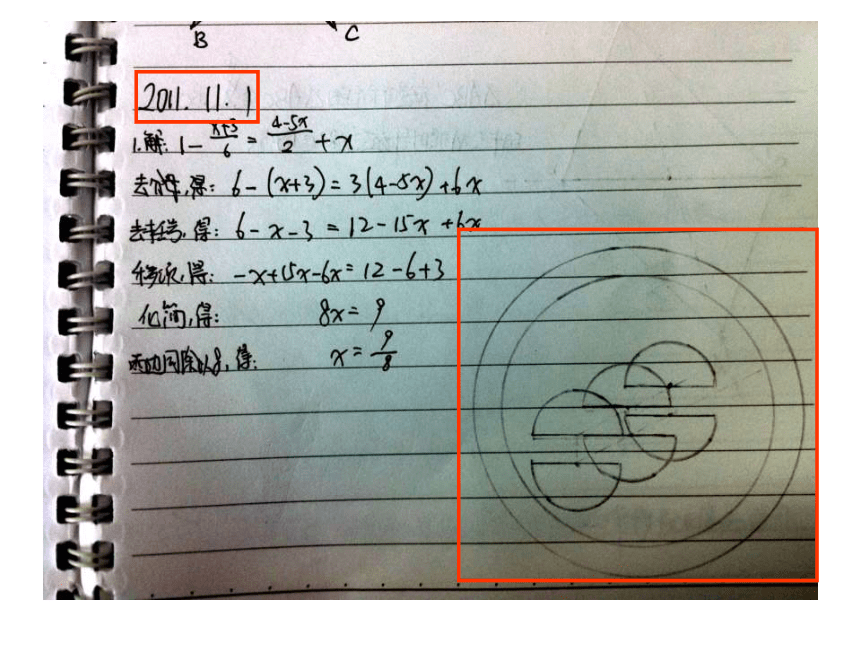 B C
2011.11.1
1.解: 1 - \frac{x+3}{6} = \frac{4-5x}{2} + x
去分母,得: 6-(x+3)=3(4-5x)+6x
去括号,得: 6-x-3 = 12-15x+6x
移项,得: -x+15x-6x=12-6+3
化简,得: 8x=9
两边同除以8,得: x=\frac{9}{8}